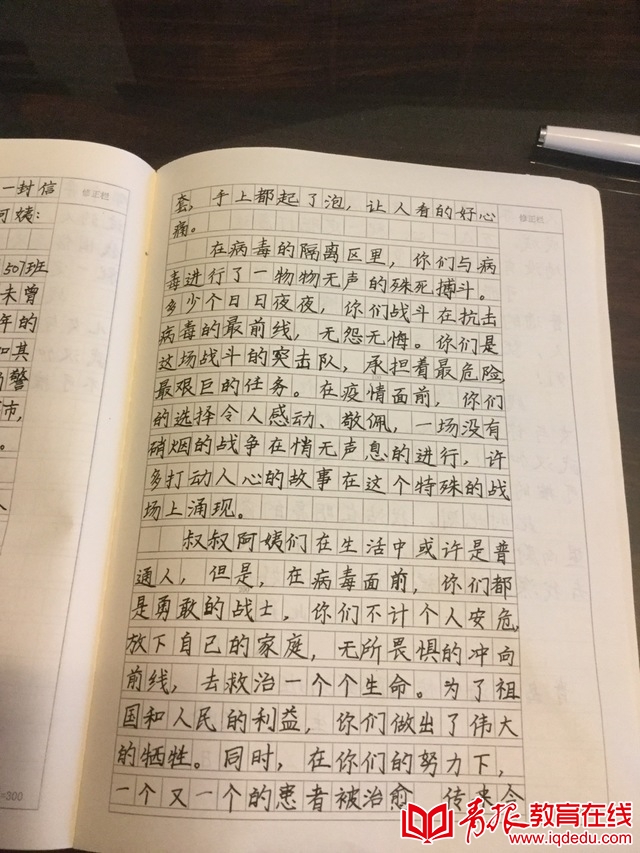 一封信
阿姨:
507班
未曾
年的
和其
的警
市,
。
人
=300
修正栏
套,手上都起了泡,让人看的好心
痛。
在病毒的隔离区里,你们与病
毒进行了一物物无声的殊死搏斗。
多少个日日夜夜,你们战斗在抗击
病毒的最前线,无怨无悔。你们是
这场战斗的突击队,承担着最危险,
最艰巨的任务。在疫情面前,你们
的选择令人感动、敬佩,一场没有
硝烟的战争在悄无声息的进行,许
多打动人心的故事在这个特殊的战
场上涌现。
叔叔阿姨们在生活中或许是普
通人,但是,在病毒面前,你们都
是勇敢的战士,你们不计个人安危,
放下自己的家庭,无所畏惧的冲向
前线,去救治一个个生命。为了祖
国和人民的利益,你们做出了伟大
的牺牲。同时,在你们的努力下,
一个又一个的患者被治愈,传来
修正栏
青报教育在线
www.iqdedu.com